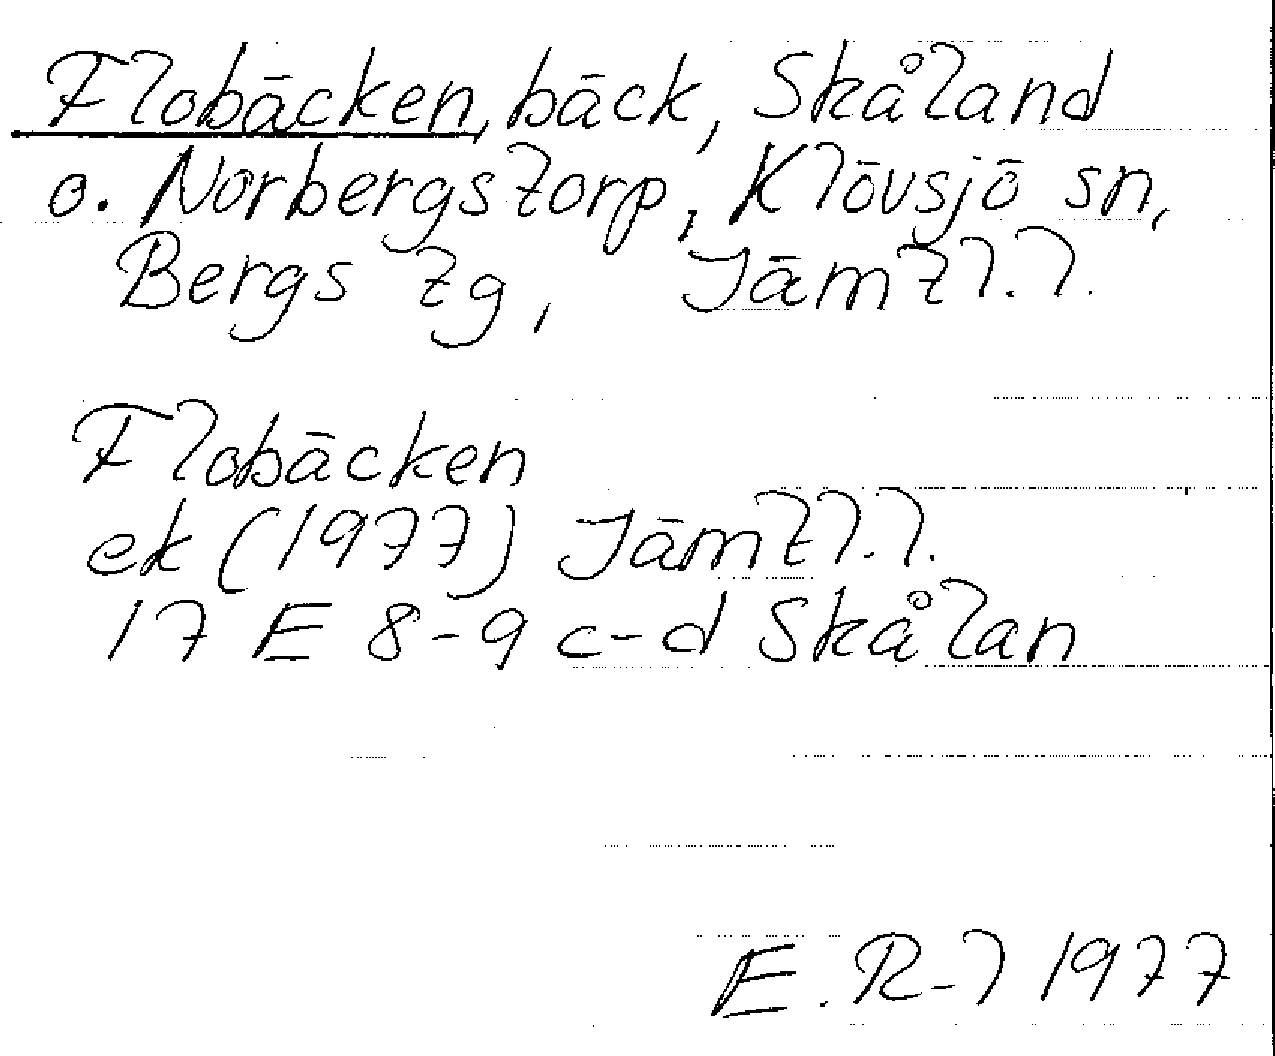 Flobäcken, bäck, Skåland
o. Norbergstorp, Klövsjö sn,
Bergs tg, Jämtl. l.
Flobäcken
ek (1977) Jämtl. l.
17 E 8-9 c-d Skålan
E. R-l 1977